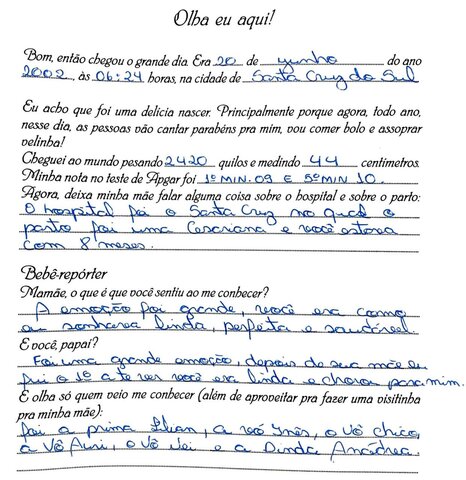 Olha eu aqui!
Bom, então chegou o grande dia. Era 20 de Junho do ano
2002, às 06:24 horas, na cidade de Santa Cruz do Sul
Eu acho que foi uma delicia nascer. Principalmente porque agora, todo ano,
nesse dia, as pessoas vão cantar parabéns pra mim, vou comer bolo e assoprar
velinha!
Cheguei ao mundo pesando 2420 quilos e medindo 44 centímetros.
Minha nota no teste de Apgar foi 1º MIN. 09 E 5º MIN 10.
Agora, deixa minha mãe falar alguma coisa sobre o hospital e sobre o parto:
O hospital foi o Santa Cruz no qual o
parto foi uma Cesariana e você estava
com 8 meses.
Bebê-repórter
Mamãe, o que é que você sentiu ao me conhecer?
A emoção foi grande, você era como
eu sonhava linda, perfeita e saudável
E você, papai?
Foi uma grande emoção, depois de sua mãe eu
fui o 1º a te ver você era linda e chorou para mim.
E olha só quem veio me conhecer (além de aproveitar pra fazer uma visitinha
pra minha mãe):
foi a prima Lilian, a vó Inês, o Vô chico,
a Vó Auri, o Vô Vei e a Dinda Andréa.